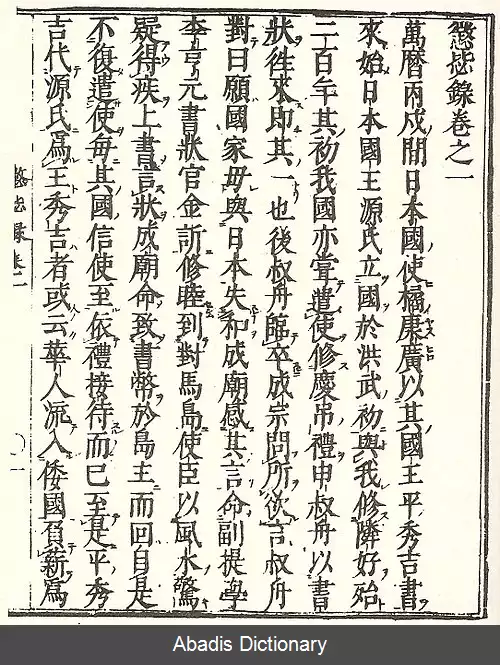 懲毖錄卷之一
萬曆丙戌間日本國使橘康廣以其國王平秀吉書
來始日本國王源氏立國於洪武初與我修隣好殆
二百年其初我國亦嘗遣使修慶吊禮申叔舟以書
狀徃來即其一也後叔舟臨卒成宗問所欲言叔舟
對曰願國家毋與日本失和成廟感其言命副提學
李亨元書狀官金訢修睦到對馬島使臣以風水驚
疑得疾上書言狀成廟命致書幣於島主而回自是
不復遣使每其國信使至依禮接待而已至是平秀
吉代源氏爲王秀吉者或云華人流入倭國負薪爲
Abadis Dictionary